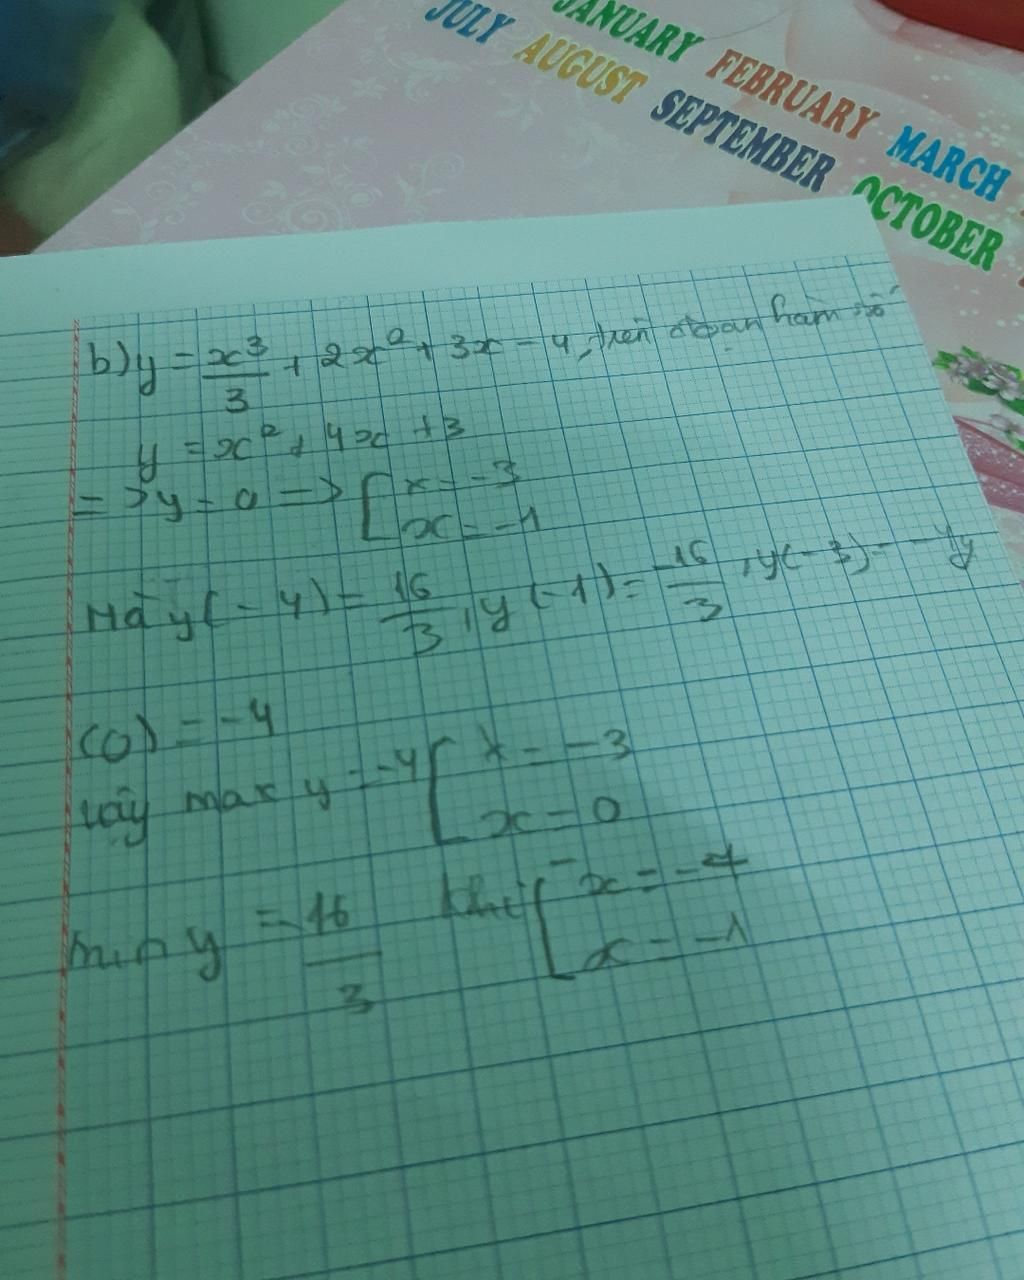 JANUARY FEBRUARY MARCH
JULY AUGUST SEPTEMBER OCTOBER
b) y = x³/3 + 2x² + 3x - 4, trên đoạn hàm số
y = x² + 4x + 3
=> y = 0 => [ x = -3
x = -1
Mà y(-4) = 16/3, y(-1) = -16/3, y(-3) = -4y
(0) = -4
vậy max y = -4 [ x = -3
x = 0
min y = 16/3 khi [ x = -4
x = -1